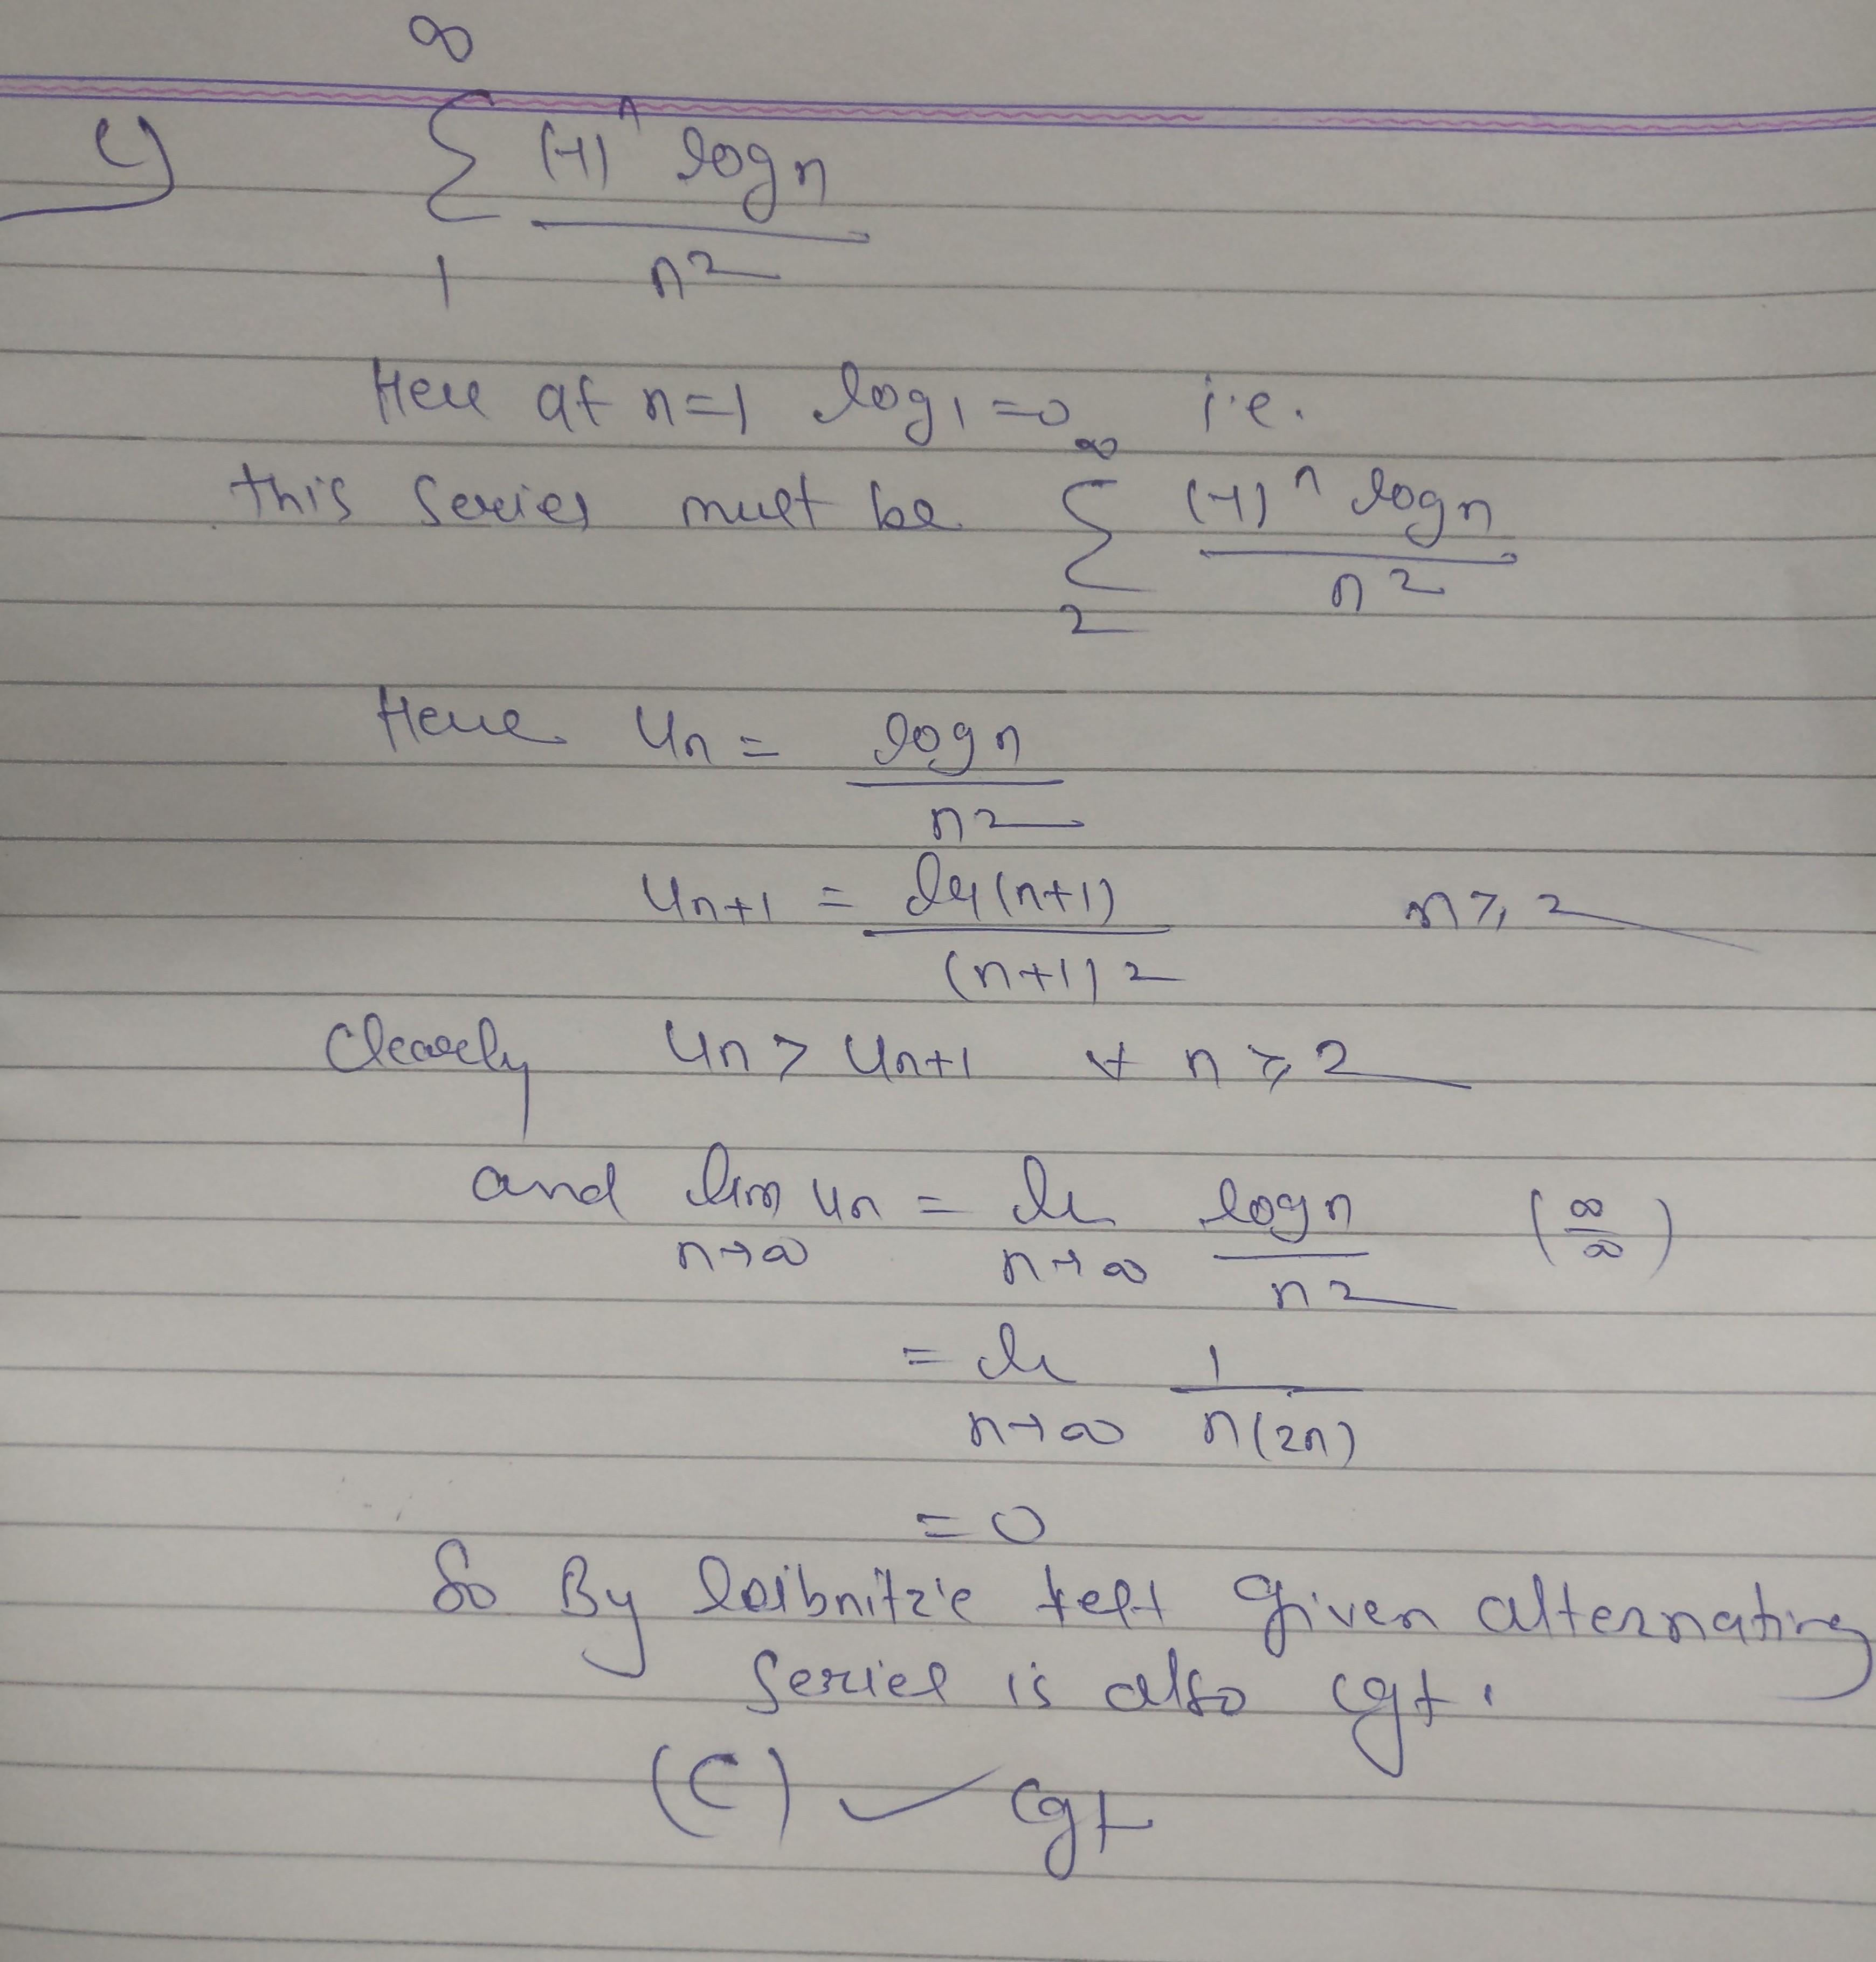 c) ∞ Σ 1 (-1)^n log n / n²
Here at n=1 log 1 = 0 i.e.
this series must be ∞ Σ 2 (-1)^n log n / n²
Here un = log n / n²
un+1 = log(n+1) / (n+1)² n ≥ 2
Clearly un > un+1 ∀ n ≥ 2
and lim n→∞ un = lim n→∞ log n / n² (∞/∞)
= lim n→∞ 1 / n(2n)
= 0
So By leibnitz's test given alternating
series is also cgt.
(C) ✓ cgt